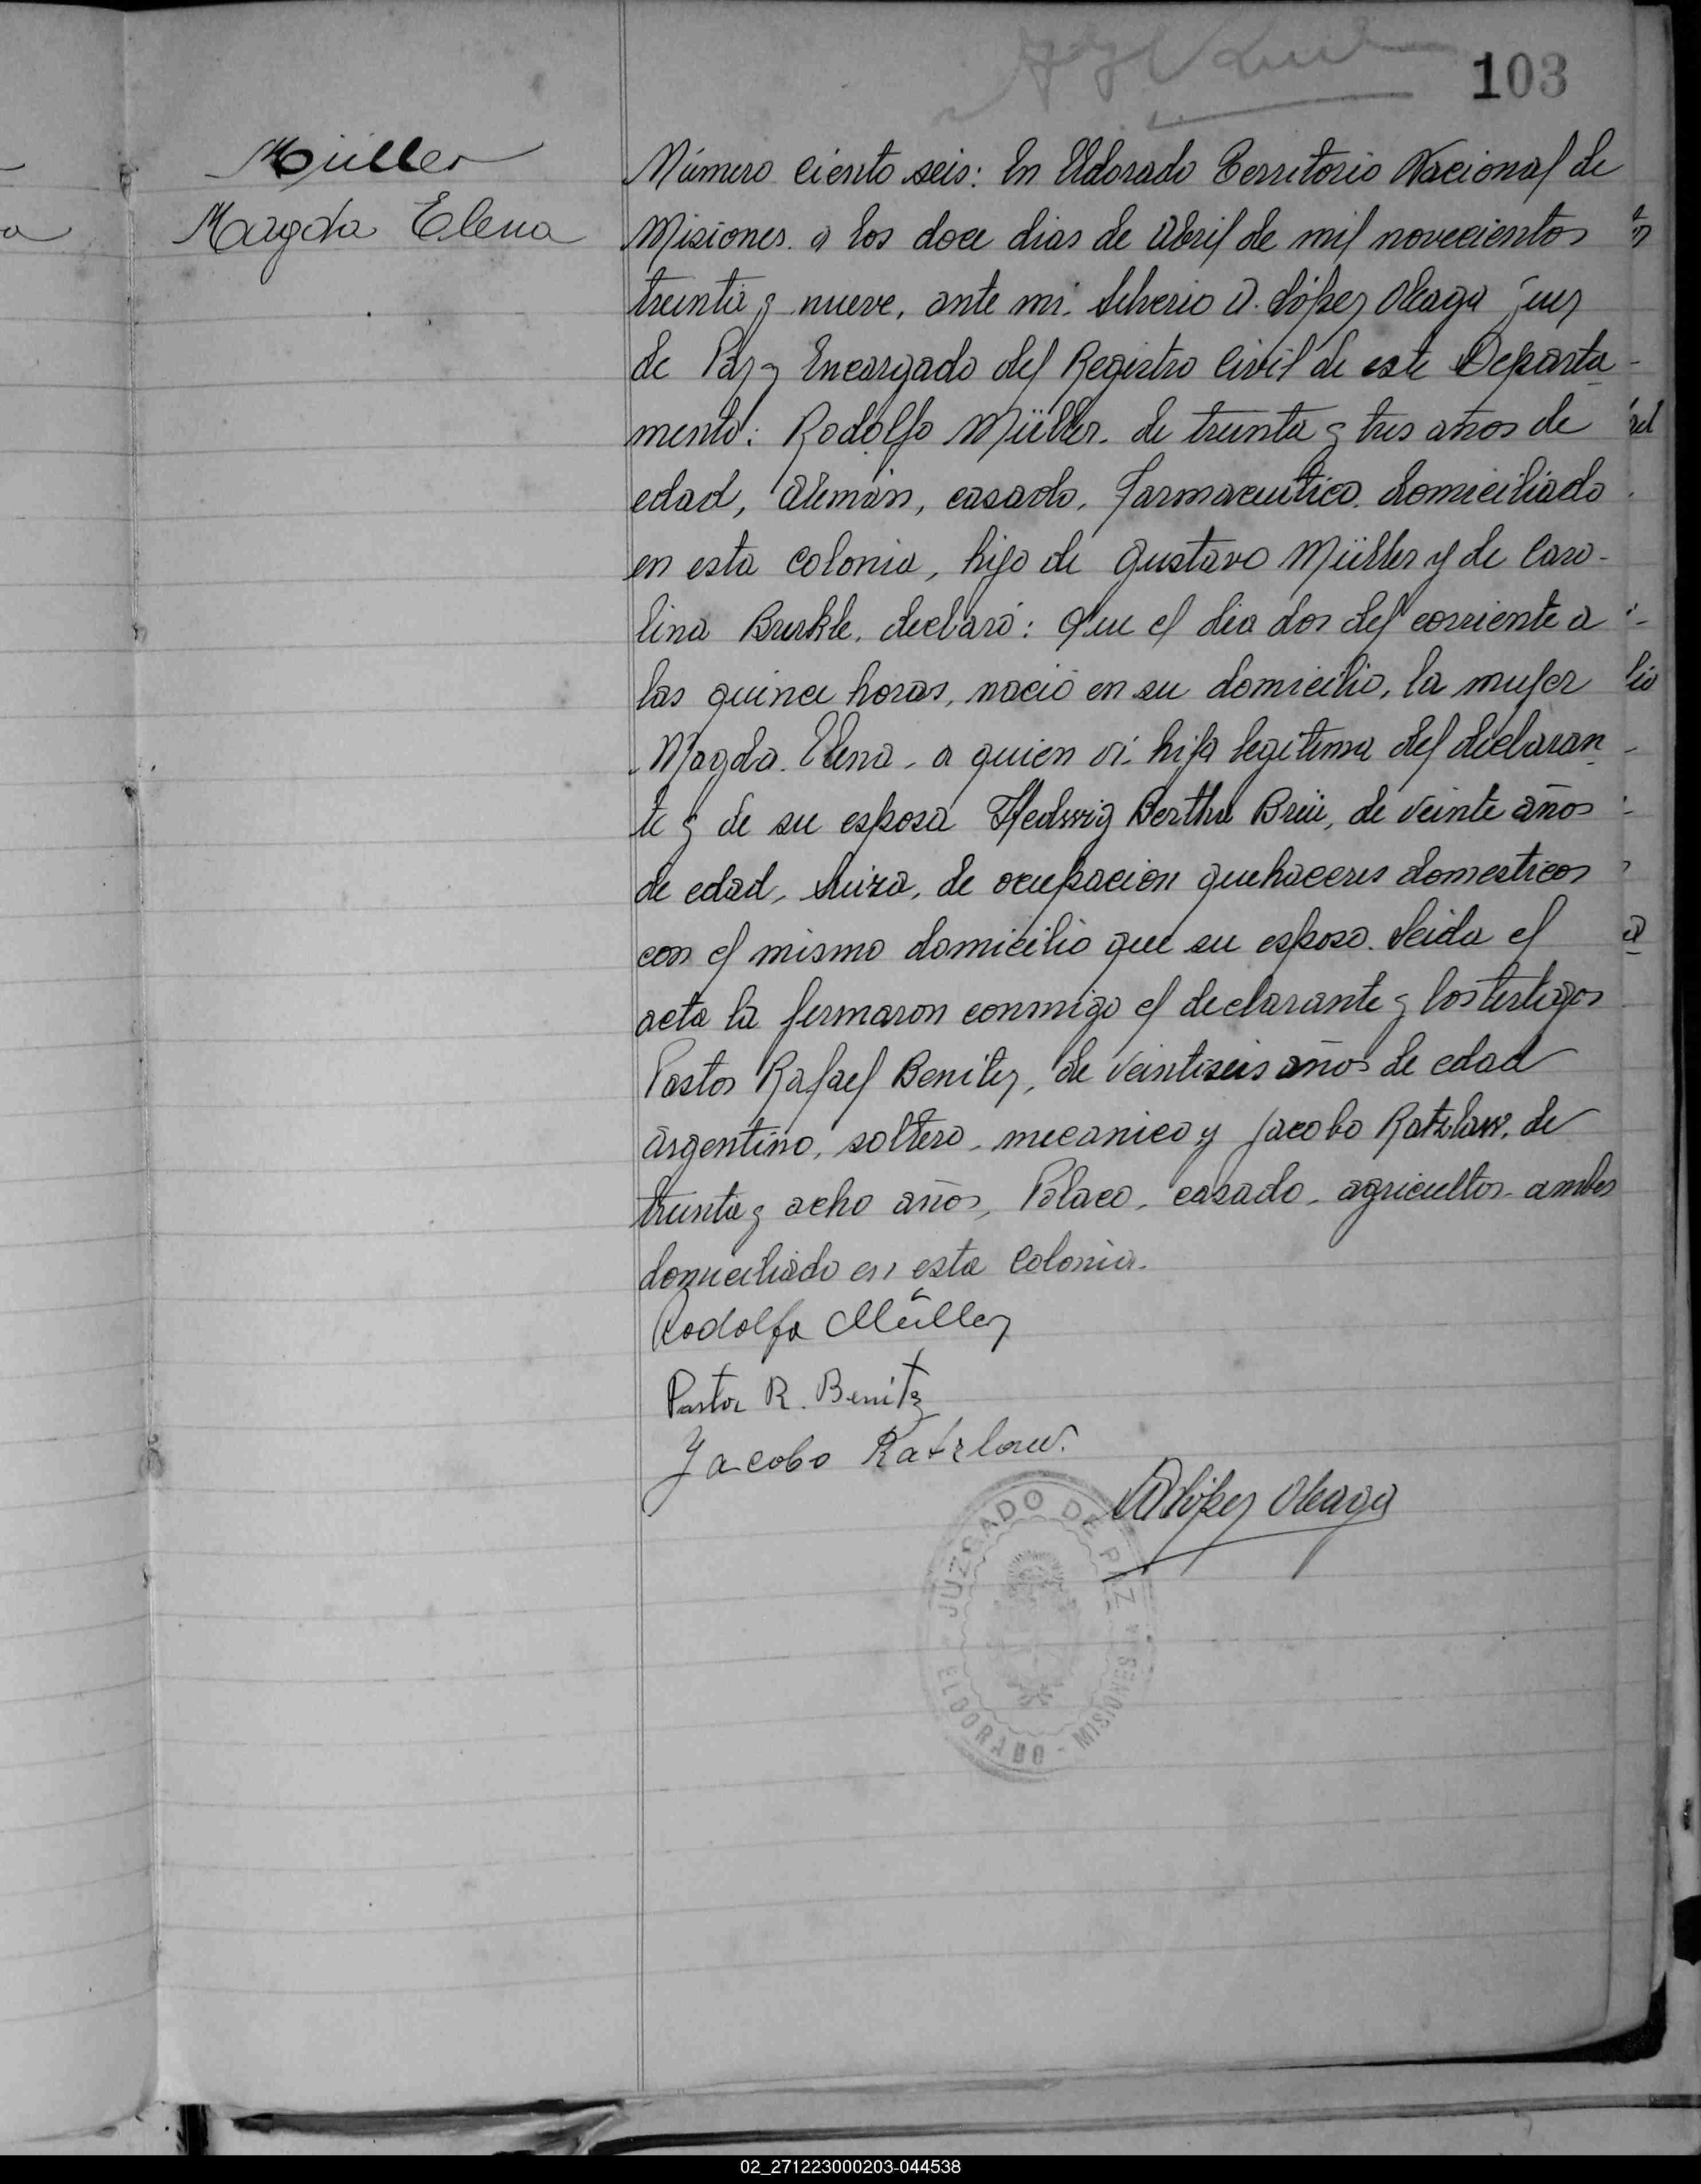 103
Müller
Magda Elena
Número ciento seis: En Eldorado Territorio Nacional de
Misiones a los doce dias de Abril de mil novecientos
treinta y nueve, ante mi. Silverio A. López Oleaga juez
de Paz y Encargado del Registro Civil de este Departa-
mento: Rodolfo Müller. de treinta y tres años de
edad, Alemán, casado, farmaceutico. domiciliado
en esta Colonia, hijo de Gustavo Müller y de Caro-
lina Burkle. declaró: Que el dia dos del corriente a
las quince horas, nació en su domicilio, la mujer
Magda Elena, a quien ví. hija legitima del declaran
te y de su esposa Hedwig Bertha Breü, de veinte años
de edad, Suiza, de ocupación quehaceres domesticos
con el mismo domicilio que su esposo. Leida el
acta la firmaron conmigo el declarante y los testigos
Pastor Rafael Benitez, de veintiseis años de edad
argentino, soltero, mecanico y Jacobo Ratzlaw, de
treinta y ocho años, Polaco, casado, agricultor ambos
domiciliado en esta Colonia.
Rodolfo Müller
Pastor R. Benitz
Jacobo Ratzlaw.
López Oleaga
JUZGADO DE PAZ
ELDORADO - MISIONES
02_271223000203-044538